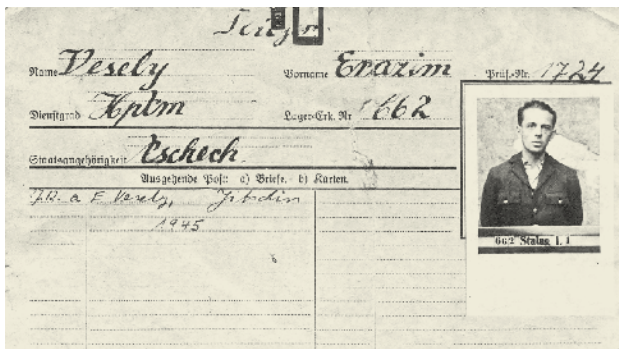 Name Vesely Vorname Erazim Prüf.-Nr. 1724
Dienstgrad Hptm Lager-Erk. Nr 662
Staatsangehörigkeit Tschech.
Ausgehende Post: a) Briefe. b) Karten.
a E Vesely,
1945
662 Stalag L 1